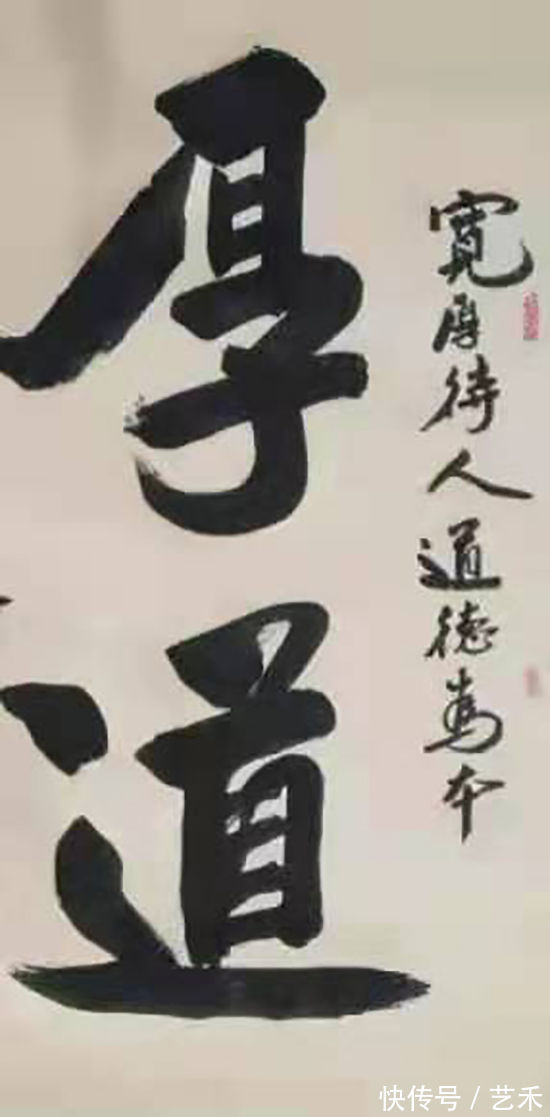 寬厚待人道德為本
厚道
快传号/艺禾